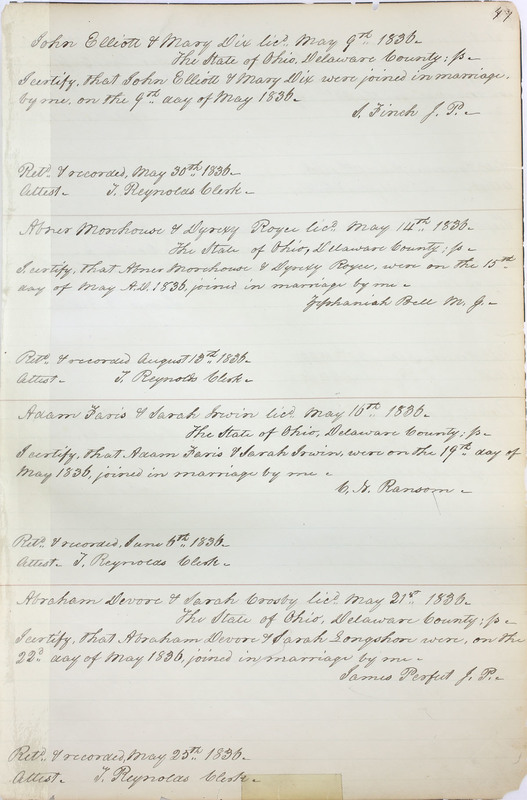 47
John Elliott & Mary Dix licd. May 9th 1836.
The State of Ohio, Delaware County; ss
I certify, that John Elliott & Mary Dix were joined in marriage,
by me, on the 9th day of May 1836.
S. Finch J. P.
Retd. & recorded, May 30th 1836.
Attest. T. Reynolds Clerk.
Abner Morehouse & Dyrexy Royce licd. May 14th 1836.
The State of Ohio, Delaware County; ss
I certify, that Abner Morehouse & Dyrexy Royce, were on the 15th
day of May A.D. 1836, joined in marriage by me.
Zephaniah Bell M. G.
Retd. & recorded August 13th 1836.
Attest. T. Reynolds Clerk.
Adam Faris & Sarah Irwin licd. May 16th 1836.
The State of Ohio, Delaware County; ss
I certify, that Adam Faris & Sarah Irwin, were on the 19th day of
May 1836, joined in marriage by me.
C. G. Ransom.
Retd. & recorded, June 6th 1836.
Attest. T. Reynolds Clerk.
Abraham Devore & Sarah Crosby licd. May 21st 1836.
The State of Ohio, Delaware County; ss
I certify, that Abraham Devore & Sarah Longshore were, on the
22d day of May 1836, joined in marriage by me.
James Perfect J. P.
Retd. & recorded, May 25th 1836.
Attest. T. Reynolds Clerk.